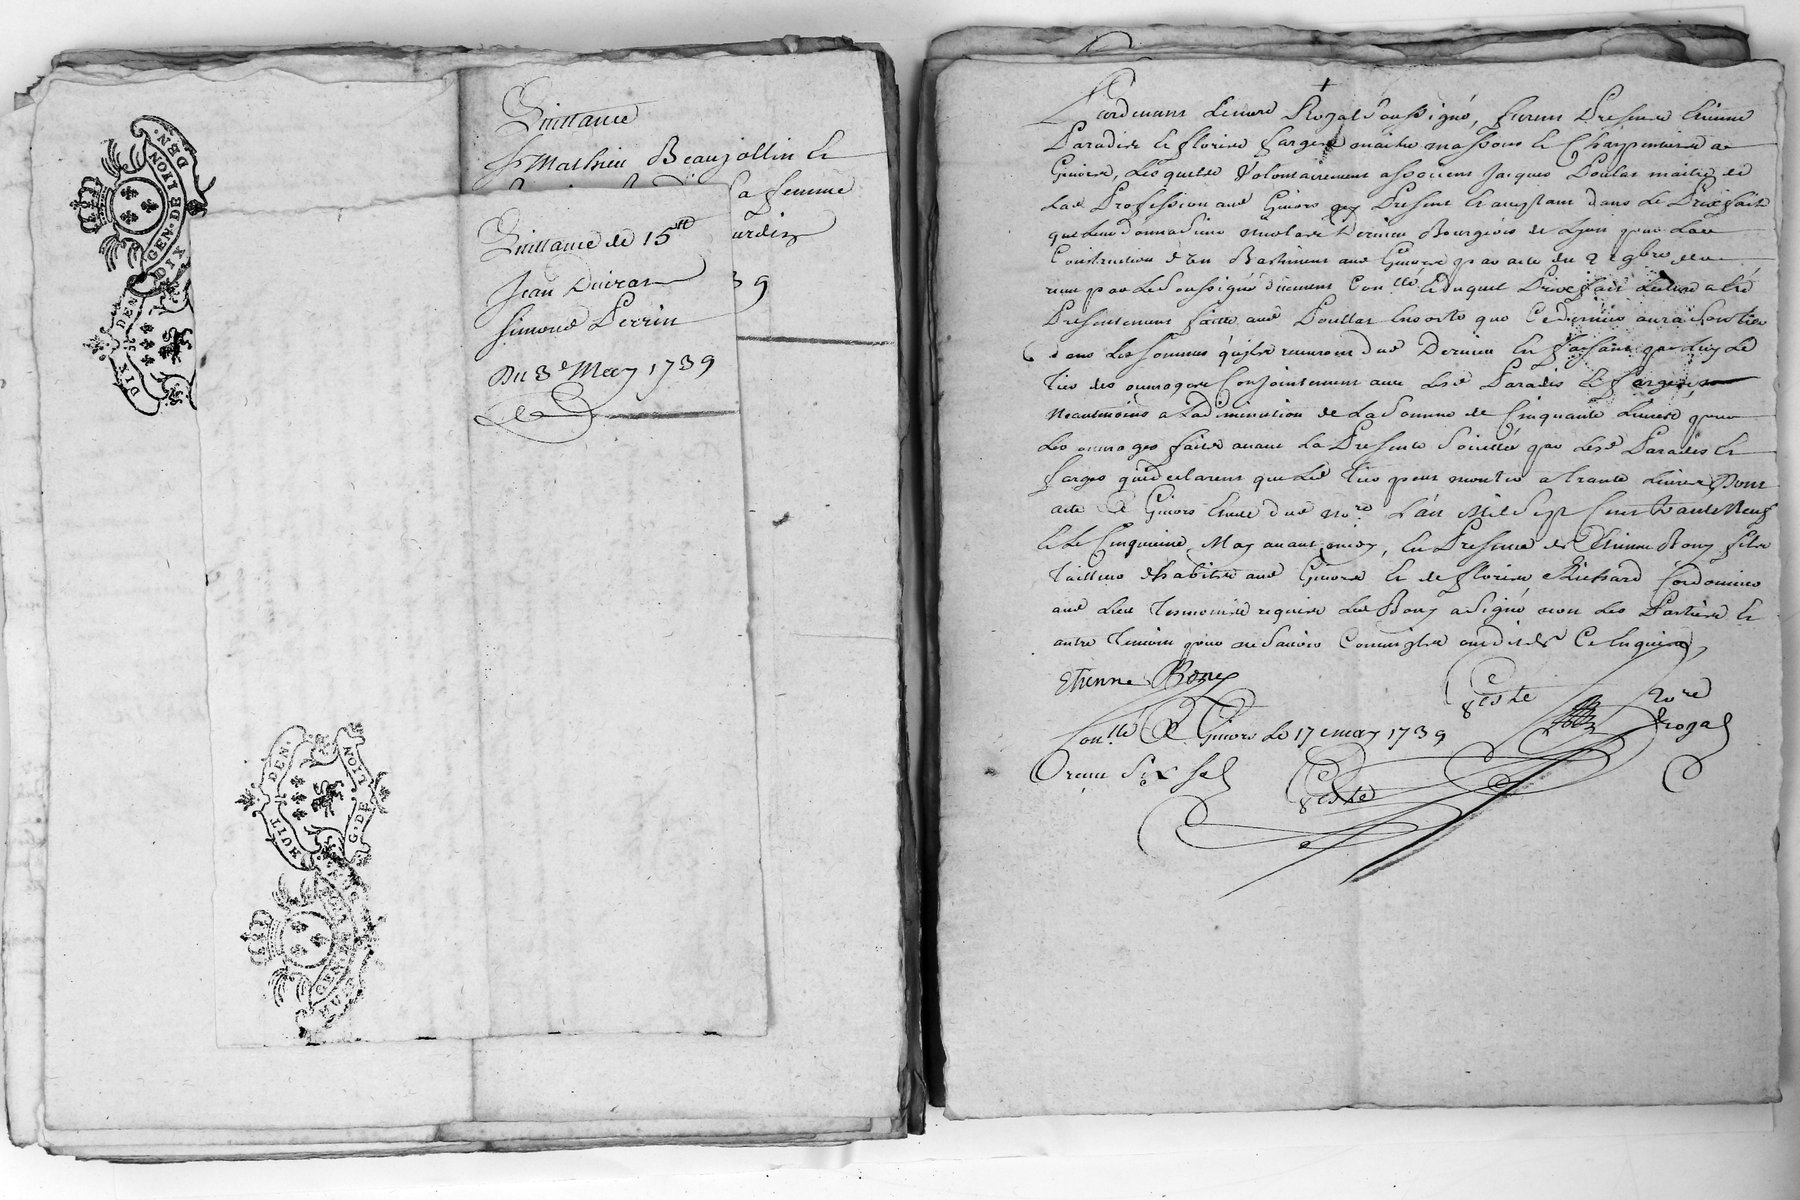 Quittance
Sr Mathieu Beaujollin et
sa femme
Quittance de 15tt
Jean Guiran
Simond Perrin
Du 3e May 1739
39
DIX DEN.
GEN. DE LYON
DIX DEN.
HUIT DEN.
G. DE LION
Pardevant Le nore Royal Soussigné, furent Presents Etienne
Paradis et floris farges maitre massons et Charpentiers de
Givors, Lesquels Volontairement associent Jacques Poulat maitre de
Lad Profession aud Givors icy Present et acceptant dans Le Prix fait
que Leur donna Sieur nicolas Dernieu Bourgeois de Lyon pour La
Construction d'un Bastiment aud Givors par acte du 9bre
receu par Le Soussigné düement Conllé duquel Prix fait Lecture a été
Presentement faitte aud Poullat Ensorte que Ce dernier aura Son tier
dans Les Sommes qu'ils recevront dud Dernieu En faisant par Luy Le
tier des ouvrages Conjointement avec Lesd Paradis et farges,
Neantmoins a La diminution de La Somme de Cinquante Livres pour
Les ouvrages faits avant La Presente Societté par Lesd Paradis et
farges qui declarent que Led tier peut monter a trante Livres Dont
acte a Givors Etude dud nore L'an Mil Sept Cent trante Neuf
et Le Cinquieme May avant midy, En Presence de Etienne Bony fils
tailleur d'habits aud Givors et de floris Richard Cordonnier
aud Lieu temoins requis Led Bony a Signé non Les Parties et
autre temoin pour ne Savoir Comm'ils ont dit de Ce Enquis,
Etienne Bony
nore
Royal
Conllé A Givors Le 17 may 1739
Receu Six Sols